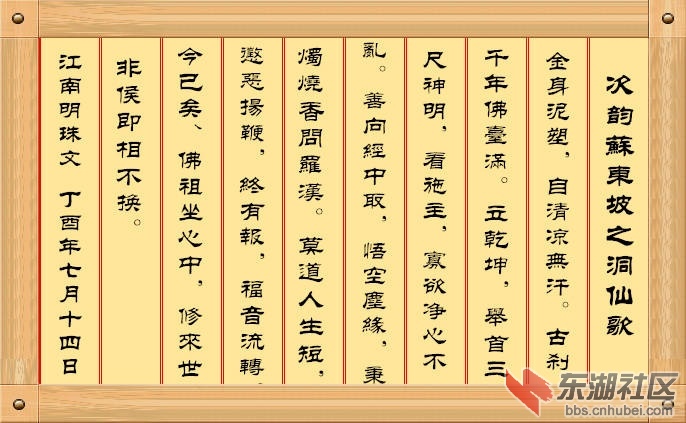 次韵蘇東坡之洞仙歌
金身泥塑，自清凉無汗。古刹
千年佛臺滿。立乾坤，舉首三
尺神明，看施主，寡欲净心不
亂。善向經中取，悟空塵緣，秉
燭燒香問羅漢。莫道人生短，
懲惡揚鞭，終有報，福音流轉。
今已矣、佛祖坐心中，修來世
非侯即相不换。
江南明珠文 丁酉年七月十四日
东湖社区
bbs.cnhubei.com